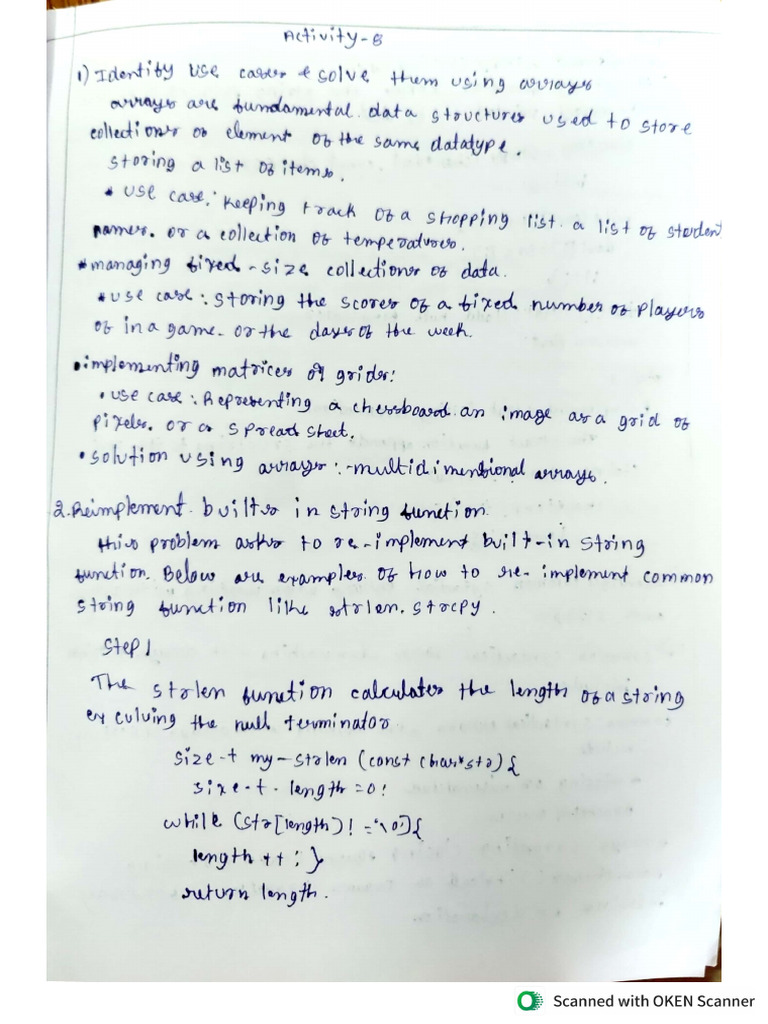 Activity-8
1) Identify use cases & solve them using arrays
arrays are fundamental data structures used to store
collections of element of the same datatype.
storing a list of items.
• use case: keeping track of a shopping list. a list of student
names. or a collection of temperatures.
• managing fixed-size collections of data.
• use case: storing the scores of a fixed number of players
of in a game. or the days of the week.
• implementing matrices of grids:
• use case: Representing a chessboard. an image as a grid of
pixels. or a spread sheet.
• solution using arrays:- multidimensional arrays.
2. Reimplement builts in string function.
this problem asks to re-implement built-in string
function. Below are examples of how to re-implement common
string function like strlen. strcpy.
Step 1
The strlen function calculates the length of a string
ex culving the null terminator
size-t my-strlen (const char*str) {
size-t. length = 0;
while (str[length] != '\0') {
length ++; }
return length.
Scanned with OKEN Scanner